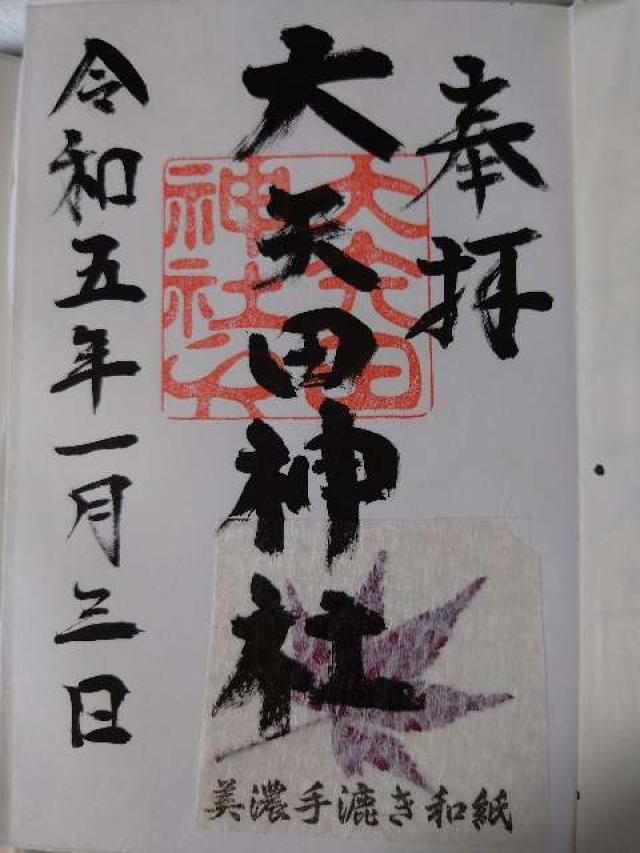 奉拝
大矢田神社
大矢田
神社
令和五年一月三日
美濃手漉き和紙